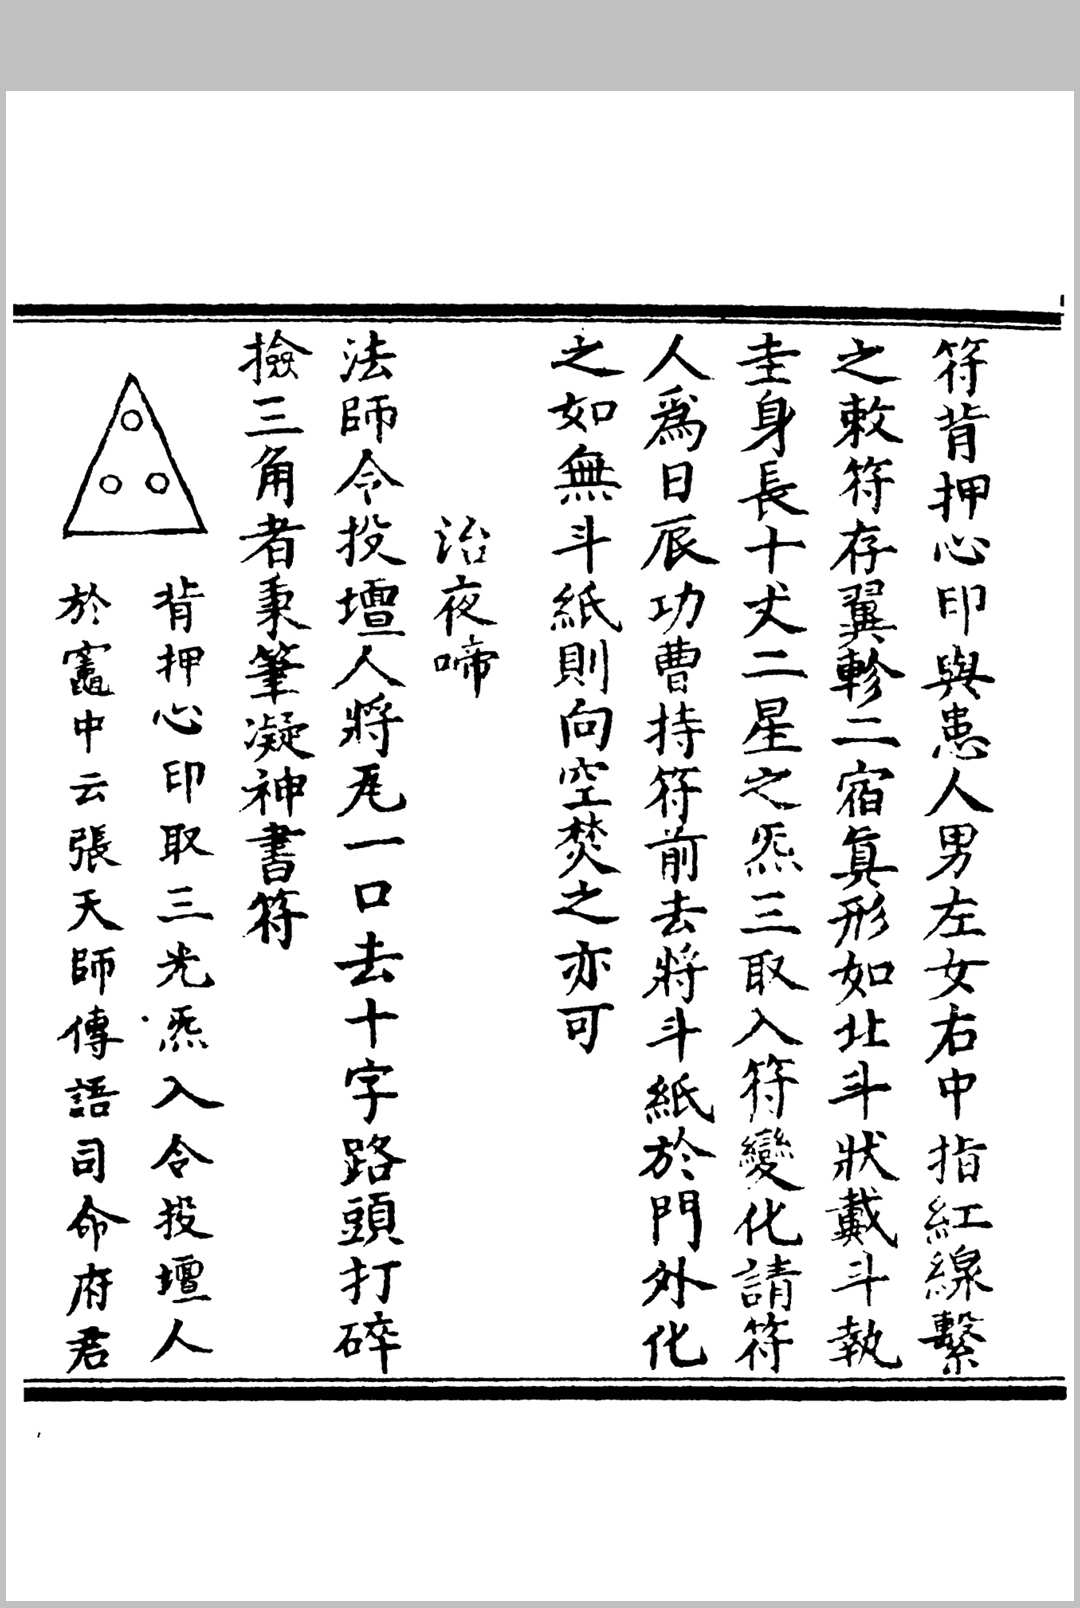 符背押心印與患人男左女右中指紅線繫
之敕符存翼軫二宿真形如北斗狀戴斗執
圭身長十丈二星之炁三取入符變化請符
人爲日辰功曹持符前去將斗紙於門外化
之如無斗紙則向空焚之亦可
治夜啼
法師令投壇人將瓦一口去十字路頭打碎
撿三角者秉筆凝神書符
背押心印取三光炁入令投壇人
於竈中云張天師傳語司命府君